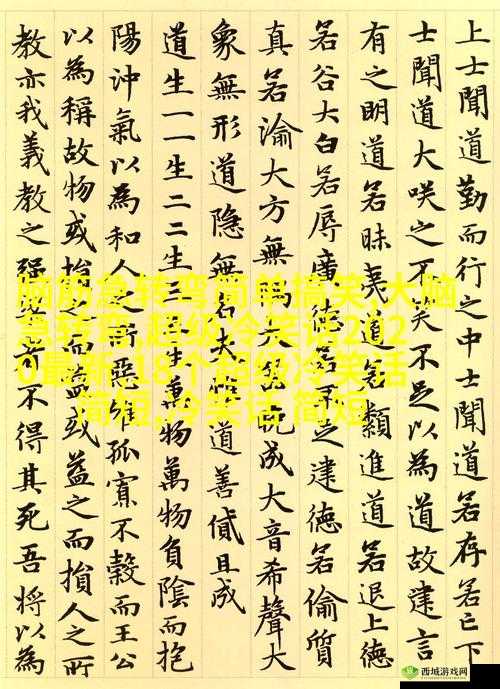 上士聞道勤而行之中士聞道若存若亡下
士聞道大咲之不笑不足以為道故建言
有之明道若昧夷道若纇進道若退上德
若谷大白若辱廣德若不足建德若偷質
真若渝大方無隅大器晚成大音希聲大
象無形道隱無名夫惟道善貸且成
道生一一生二二生三三生萬物萬物負陰而抱
陽沖氣以為和人之所惡惟孤寡不穀而王公
以為稱故物或損之而益或益之而損人之所
教亦我義教之强梁者不得其死吾將以為
脑筋急转弯简单搞笑,大脑
急转弯,超级冷笑话202
0最新,18个超级冷笑话
简短,冷笑话 简短
西域游戏网